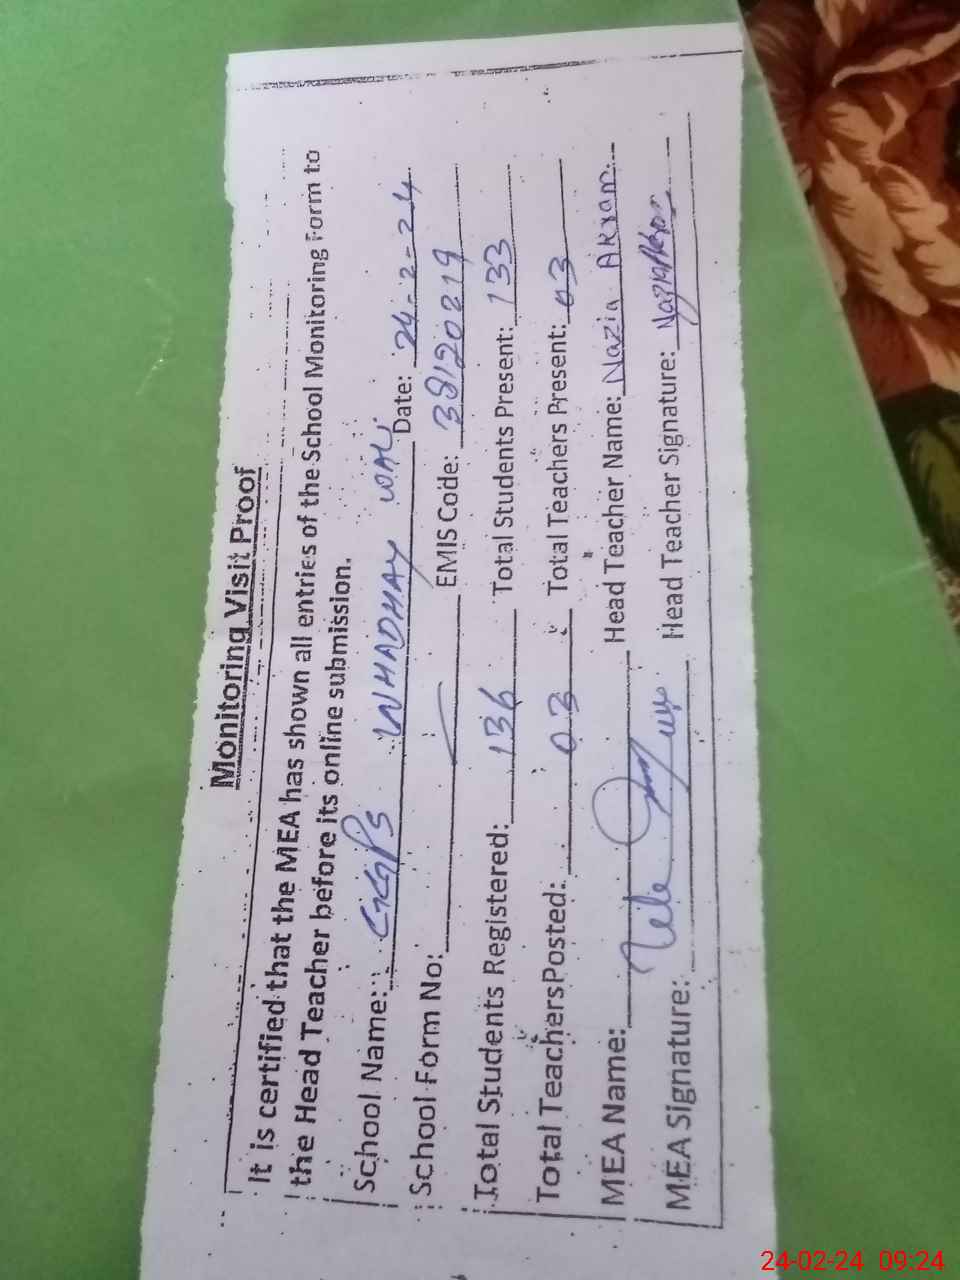 Monitoring Visit Proof
It is certified that the MEA has shown all entries of the School Monitoring Form to
the Head Teacher before its online submission.
School Name: GGPS WHADHAY WALI Date: 24-2-24
School Form No: EMIS Code: 38120219
Total Students Registered: 136 Total Students Present: 133
Total Teachers Posted: 03 Total Teachers Present: 03
MEA Name: Head Teacher Name: Nazia Akram
MEA Signature: Head Teacher Signature: Nazia Akram
24-02-24 09:24